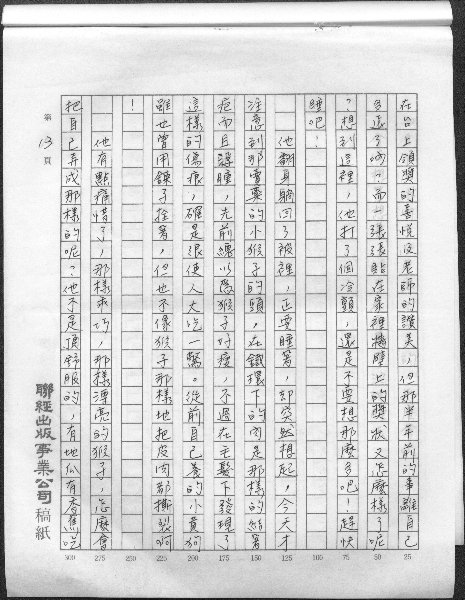 在台上領獎的喜悅沒老師的讚美,但那半年前的事離自己
多遠了啊?而一張張貼在家裡牆壁上的獎狀又怎麼樣了呢
?想到這裡,他打了個冷顫,還是不要想那麼多吧!趕快
睡吧!
他翻身躺回了被裡,正要睡著,卻突然想起,今天才
注意到那
的小猴子的頭,在鐵環下的肉是那樣的結著
疤而且浮腫,先前總以為猴子好瘦,不過在毛髮下發現了
這樣的傷痕,確是很使人大吃一驚。從前自己養的小黃狗
雖也曾用鍊子拴著,但也不像猴子那樣地把皮肉都撕裂啊
!
他有點痛惜了,那樣乖巧,那樣漂亮的猴子,怎麼會
把自己弄成那樣的呢?他不是頂舒服的,有地瓜有香蕉吃
第 13 頁
聯經出版事業公司 稿紙
25
50
75
100
125
150
175
200
225
250
275
300